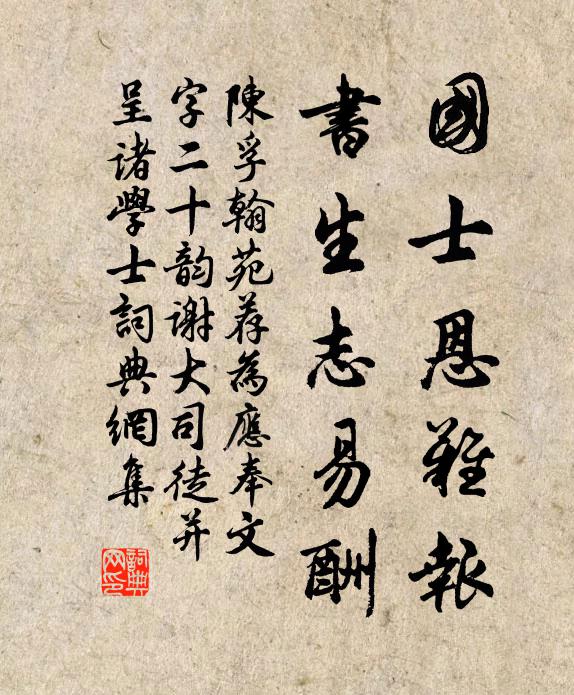 國士恩難報
書生志易酬
陳孚翰苑荐為應奉文
字二十韵谢大司徒并
呈诸學士詞典網集
詞典网印